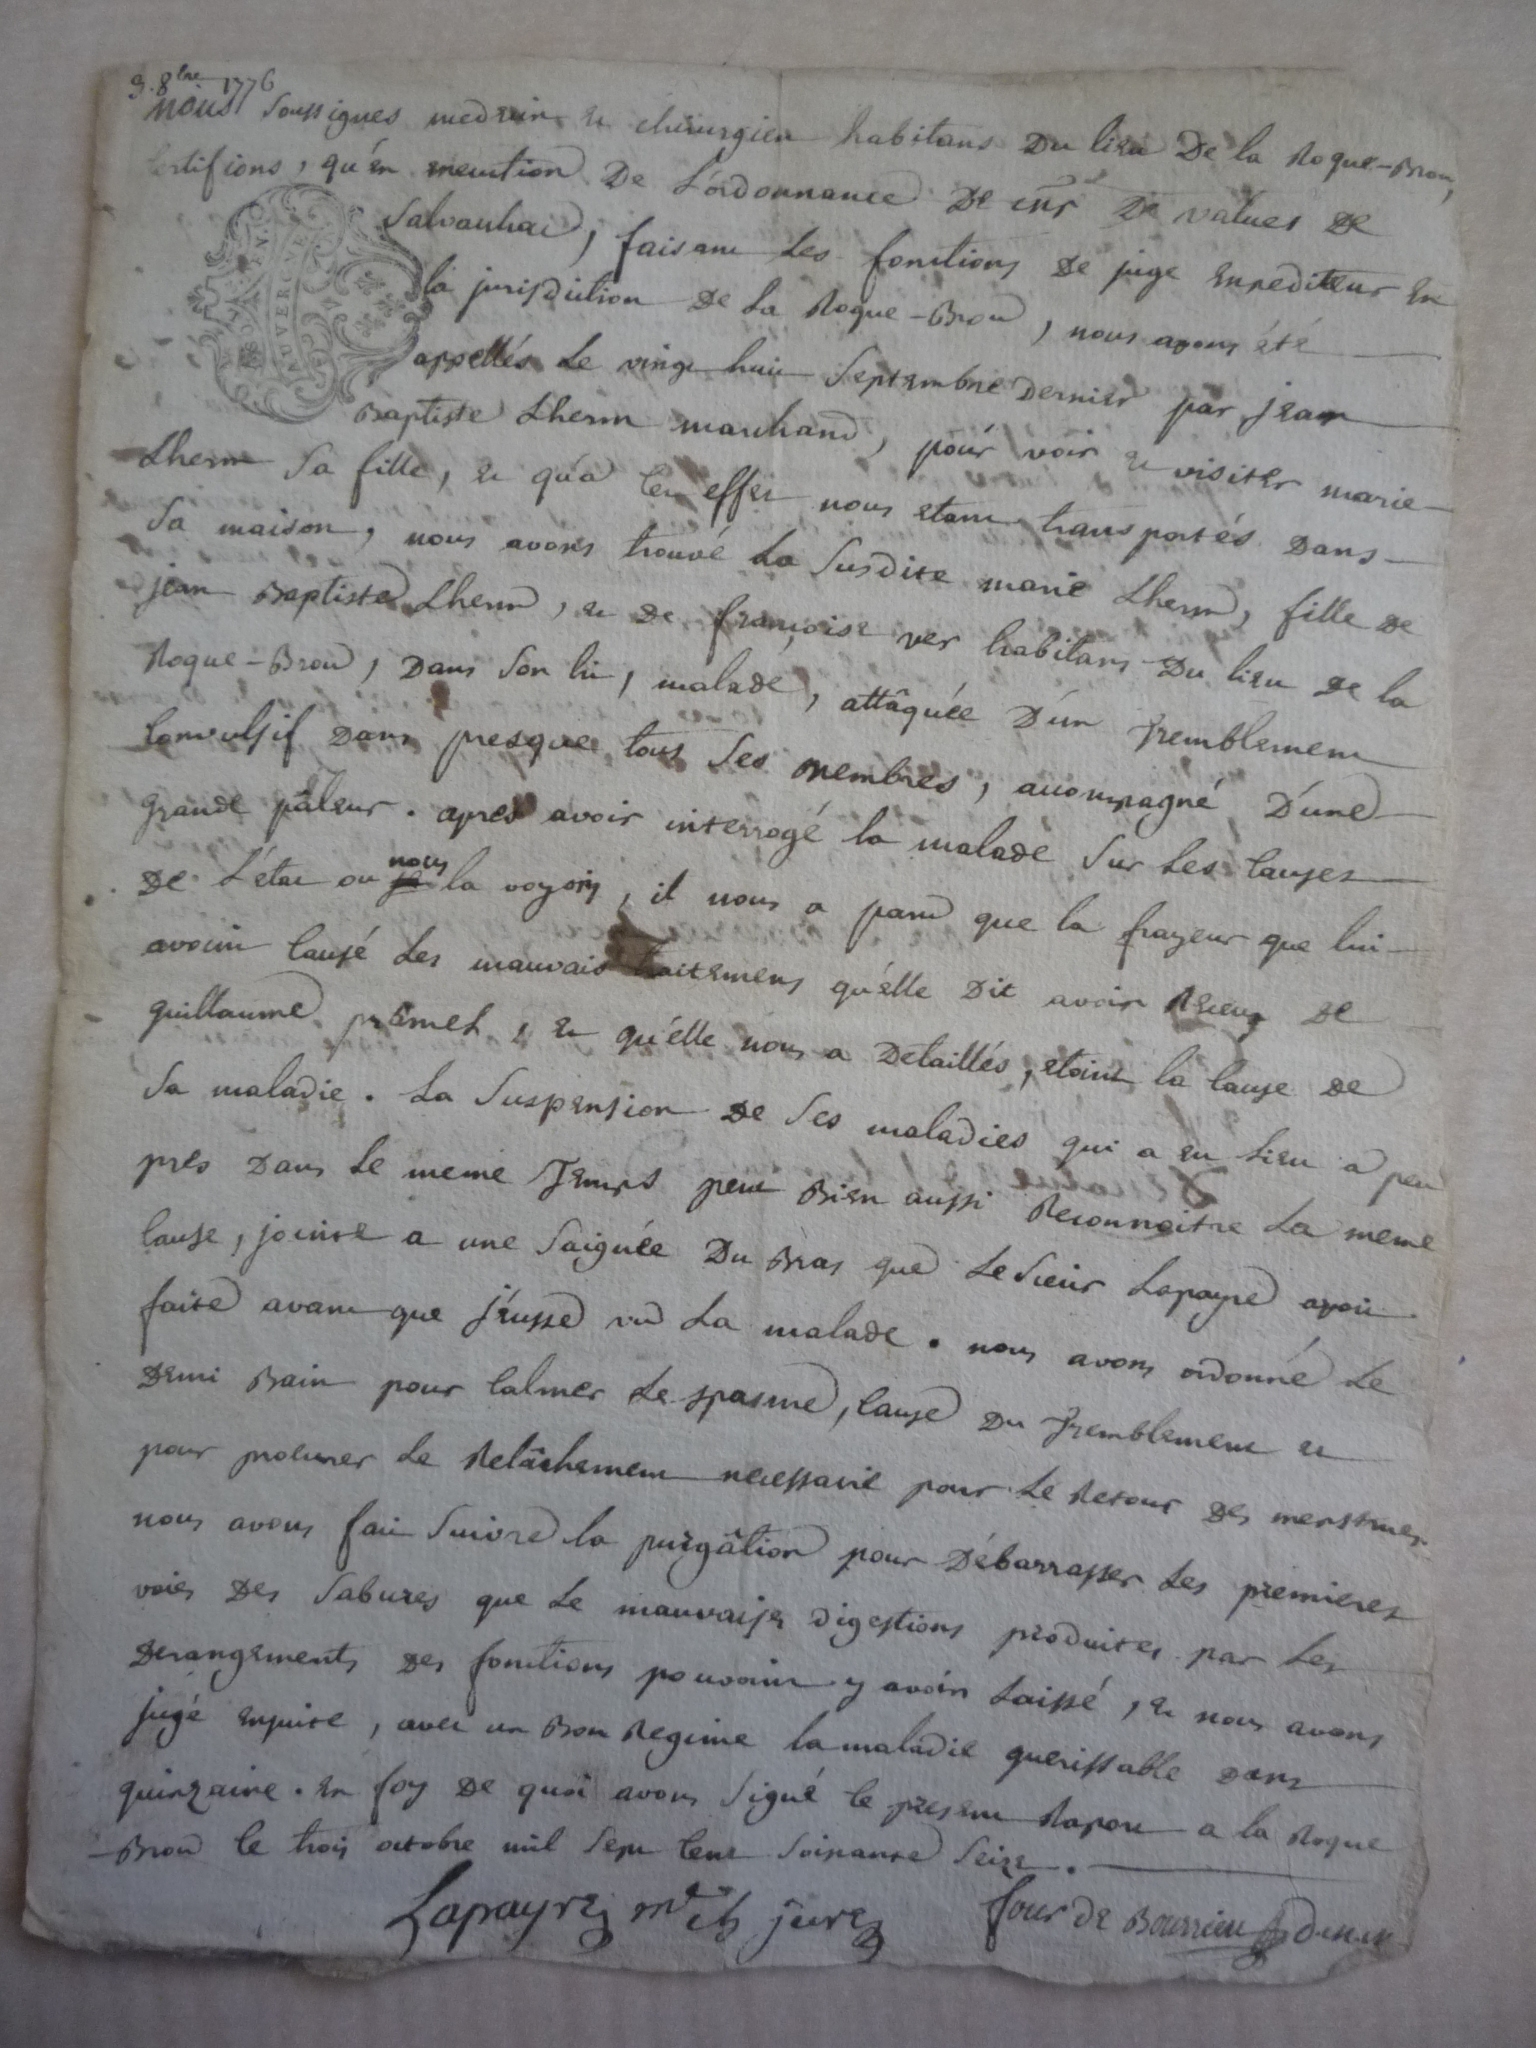 3. 8bre 1776
nous soussignes medecin et chirurgien habitans du lieu de la Roque-Brou,
certifions, qu'en execution de l'ordonnance de de values de
Salvanhac, faisant les fonctions de juge expediteur en
la jurisdiction de la Roque-Brou, nous avons été
appellés le vingt huit septembre dernier par jean
Baptiste Lherm marchand, pour voir et visiter marie
Lherm sa fille, et qu'a cet effet nous etant transportés dans
sa maison, nous avons trouvé la susdite marie Lherm, fille de
jean Baptiste Lherm, et de françoise ver habitans du lieu de la
Roque-Brou, dans son lit, malade, attâquée d'un tremblement
convulsif dans presque tous ses membres, accompagné d'une
grande pâleur. apres avoir interrogé la malade sur les causes
de l'état ou nous la voyons, il nous a paru que la frayeur que lui
avoint causé les mauvais traitemens qu'elle dit avoir receus de
guillaume premet, et qu'elle nous a detaillés, etoint la cause de
sa maladie. La suspension de ses maladies qui a eu lieu a peu
pres dans le meme temps peut bien aussi reconnoitre la meme
cause, jointe a une saignée du bras que le sieur Lapayre avoit
faite avant que j'eusse vu la malade. nous avons ordonné le
demi bain pour calmer le spasme, cause du tremblement et
pour procurer le relâchement necessaire pour le retour des menstrues.
nous avons fait suivre la purgâtion pour débarrasser les premieres
voies des sabures que le mauvaises digestions produites par les
derangements des fonctions pouvoint y avoir laissé, et nous avons
jugé ensuite, avec un bon regime la maladie guerissable dans
quinzaine. en foy de quoi avons signé le present raport a la Roque
-Brou le trois octobre mil sept cent soixante seize.
Lapayre me ch juré four de Bourrieu
AUVERGNE